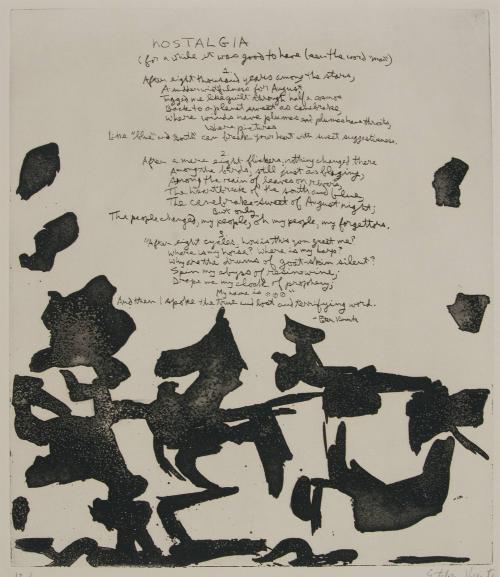 NOSTALGIA
(for a while it was good to have been the word man)
1
After eight thousand years among the stars,
A sudden wistfulness for August
Tugged me like guilt through half a cosmos
Back to a planet sweet as canebrake,
Where winds have plumes and plumes have throats,
Where pictures
Like "blue" and "south" can break your heart with sweet suggestiveness.
2
After a mere eight flickers, nothing changed there
Among the birds, still just as blazing,
Among the rain of leaves on rivers,
The heartbreak of the south and blue,
The canebrake-sweet of August night;
But only
The people changed, my people, oh my people, my forgetters.
3
"After eight cycles, how is this you greet me?
Where is my horse? Where is my harp?
Why are the drums of goat-skin silent?
Spin my abyss of resin-wine;
Drape me my cloak of prophecy;
My name is
And then I spoke the true and lost and terrifying word.